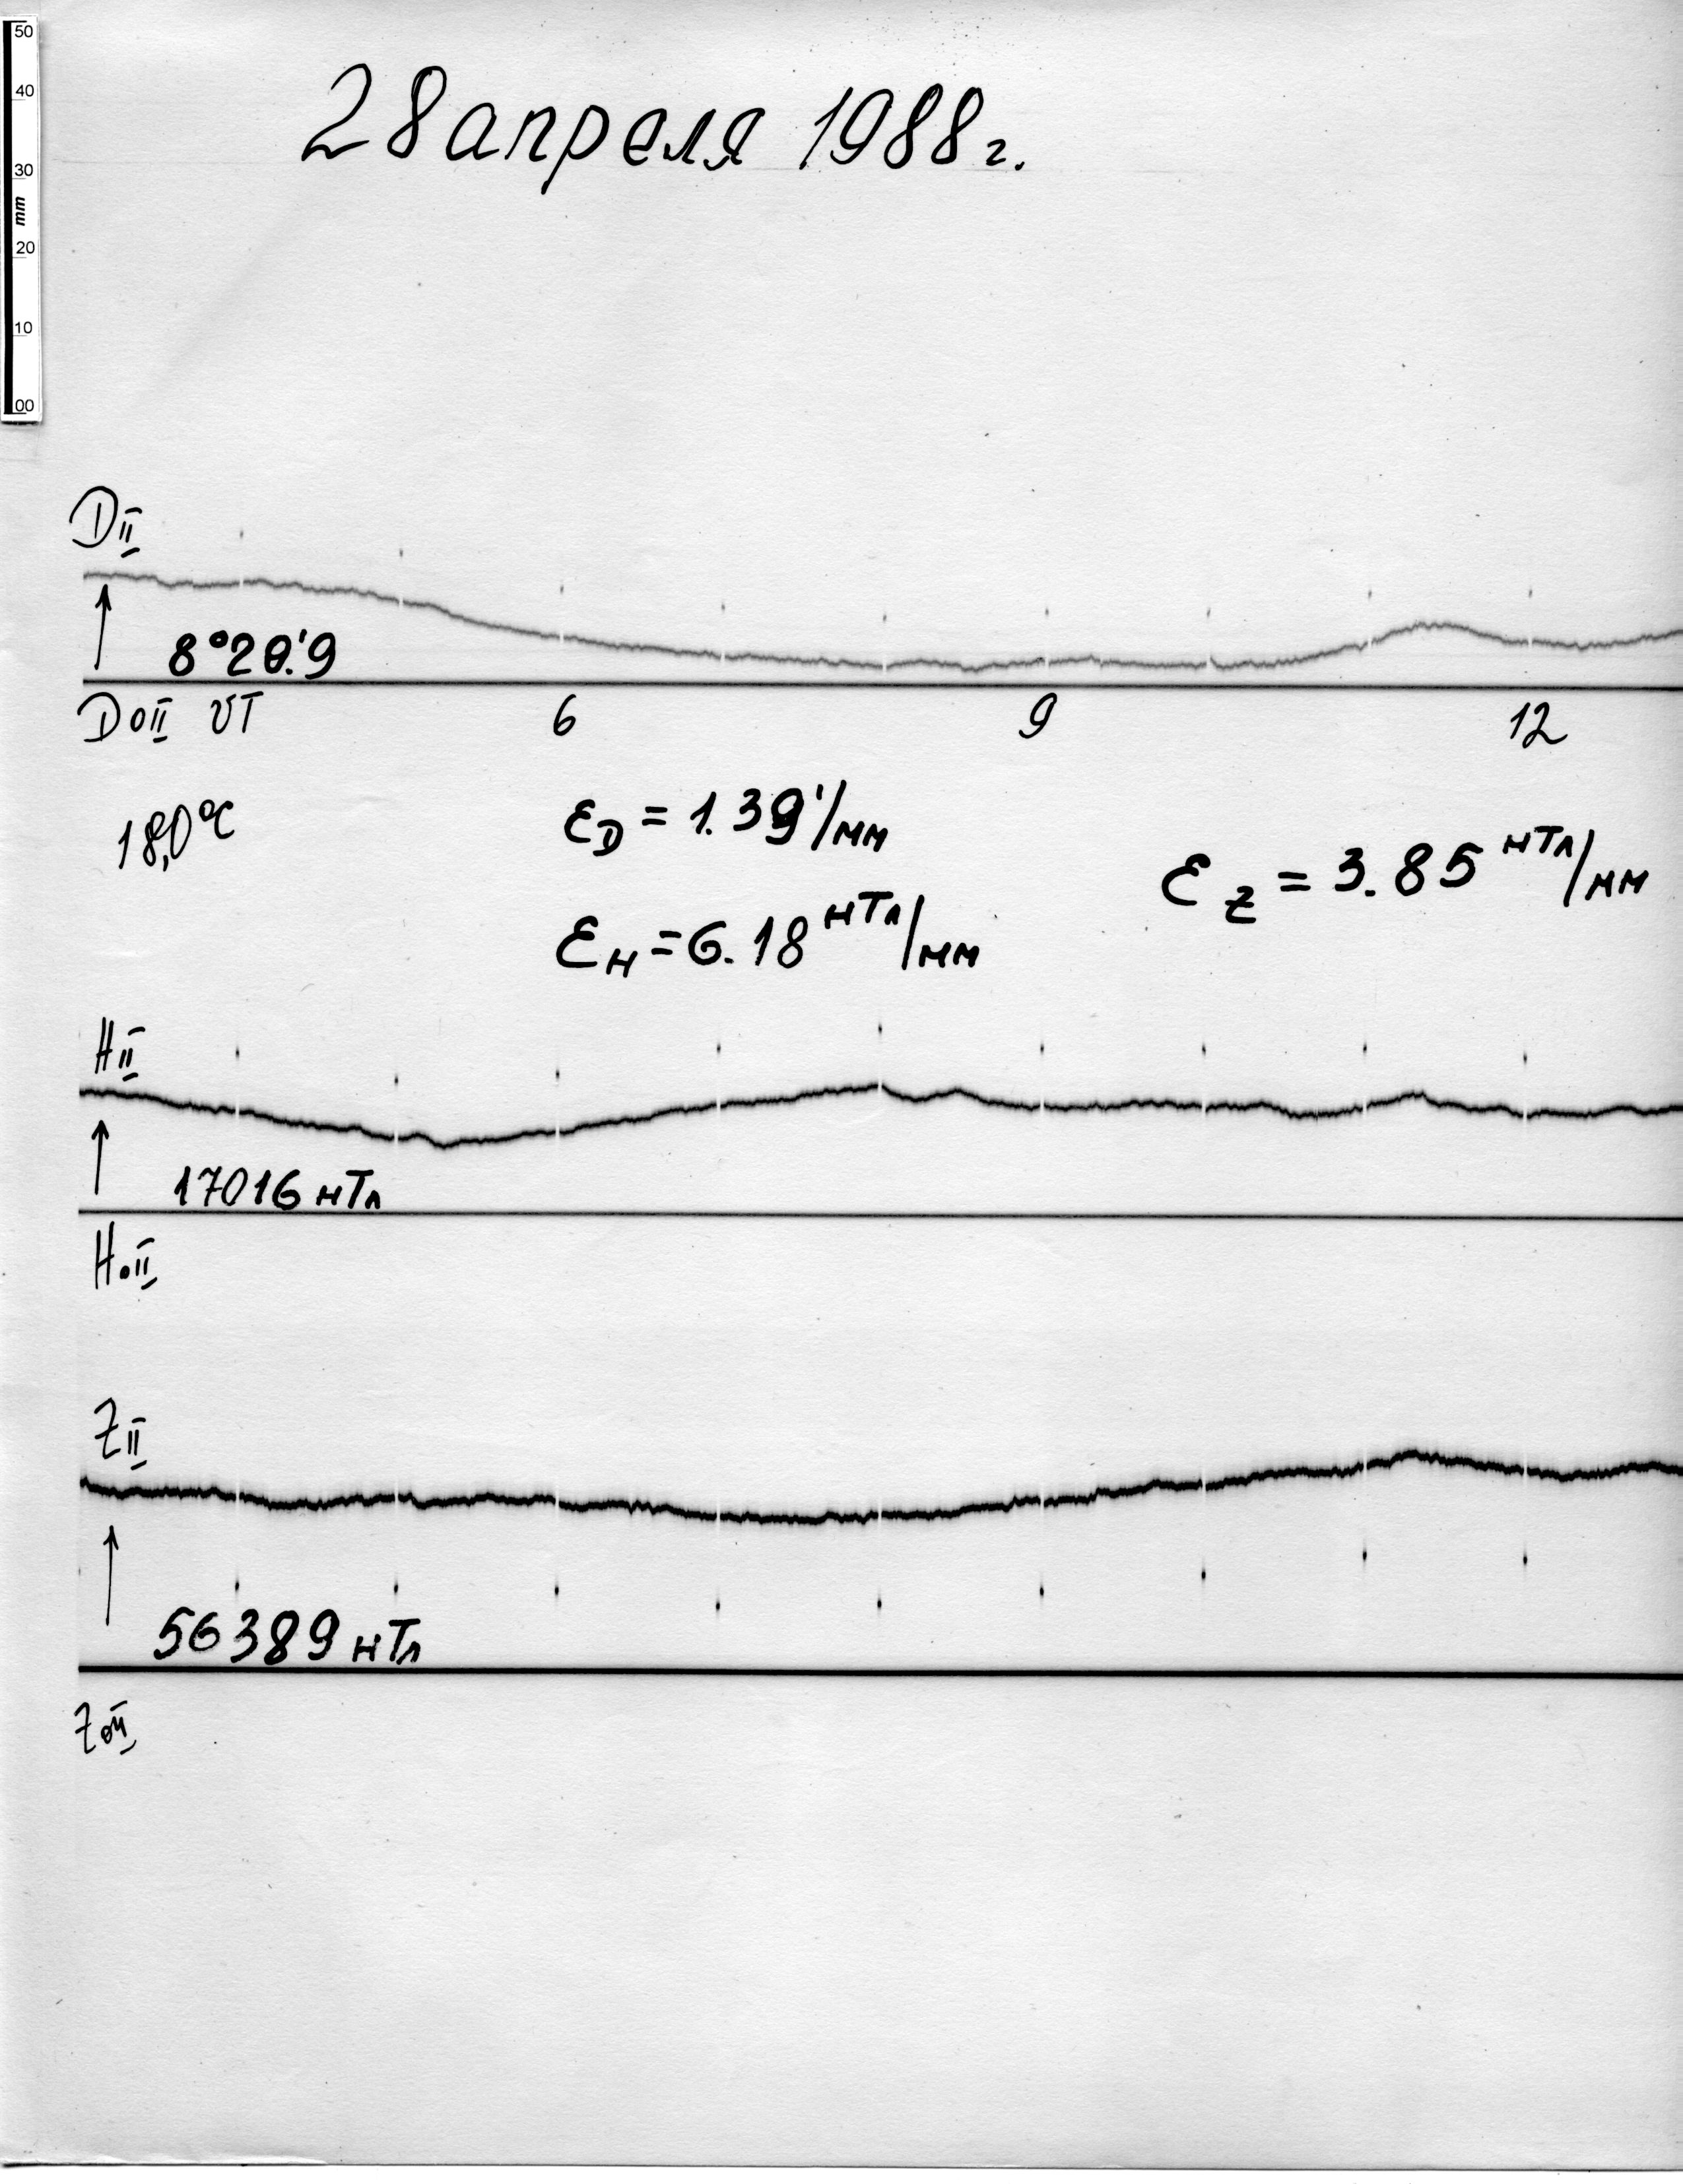 50
40
30
mm
20
10
00
28 апреля 1988 г.
DII
8°20.'9
D0II UT 6 9 12
18,0°C
εD = 1.39'/мм
εZ = 3.85 нТл/мм
εH = 6.18 нТл/мм
HII
17016 нТл
H0II
ZII
56389 нТл
Z0II